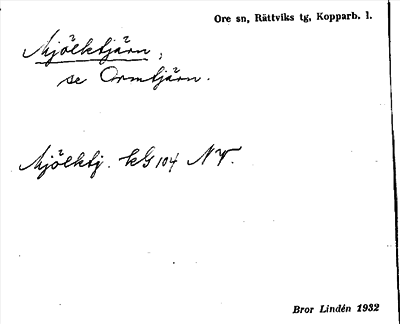 Ore sn, Rättviks tg, Kopparb. l.
Mjölktjärn,
se Ormtjärn.
Mjölktj. kG 104 NV.
Bror Lindén 1932